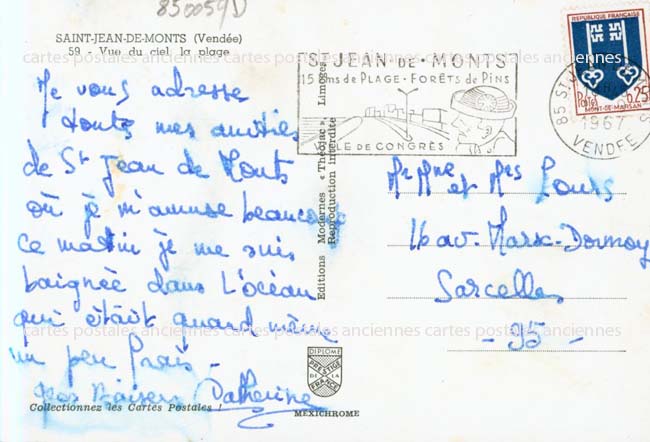 850059D
SAINT-JEAN-DE-MONTS (Vendée)
59 - Vue du ciel la plage
Je vous adresse
toutes mes amitiés
de St Jean de Monts
où je m'amuse beaucoup
ce matin je me suis
baignée dans l'océan
qui était quand même
un peu frais -
Gros Baisers Catherine
Collectionnez les Cartes Postales !
Editions Modernes « Théojac », Limoges
Reproduction interdite
DIPLOME
PRESTIGE
DE LA
FRANCE
MEXICHROME
ST JEAN-DE-MONTS
15 Kms de PLAGE - FORÊTS de PINS
LE DE CONGRÈS
REPUBLIQUE FRANÇAISE
Postes 0,25
MONT-DE-MARSAN
85 ST
1967
VENDEE
Mr Mme et Mrs
16 av. Marx-Dormoy
Sarcelles
- 95 -
cartes postales anciennes cartes postales anciennes cartes postales anciennes
cartes postales anciennes cartes postales anciennes cartes postales anciennes